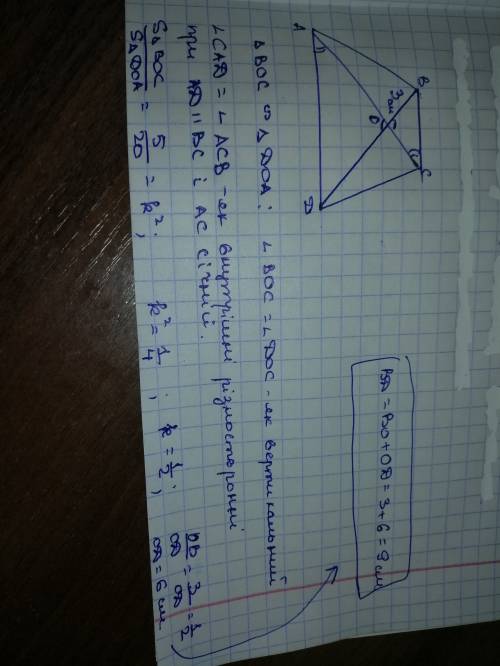 A
B
3 см
O
C
D
BD = BO + OD = 3 + 6 = 9 см
Δ BOC ∾ Δ DOA: ∠ BOC = ∠ DOC - як вертикальний
∠ CAD = ∠ ACB - як внутрішні різносторонні
при AD || BC і AC січній.
S△BOC / S△DOA = 5/20 = k²; k² = 1/4; k = 1/2; OB/OD = 3/OD = 1/2
OD = 6 см